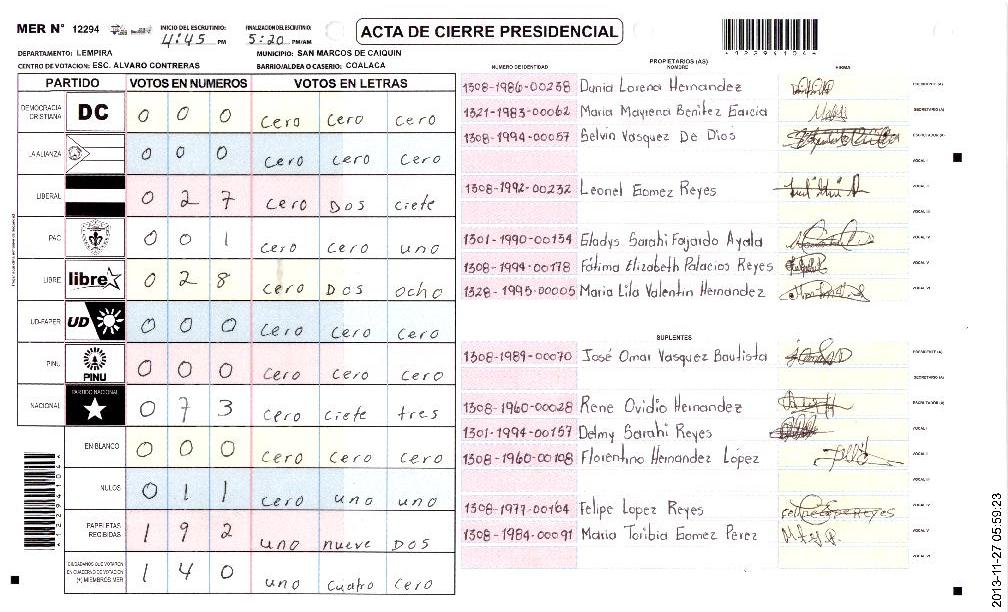 MER N° 12294 INICIO DEL ESCRUTINIO: 4:45 PM FINALIZACION DEL ESCRUTINIO: 5:20 PM/AM
ACTA DE CIERRE PRESIDENCIAL
DEPARTAMENTO: LEMPIRA MUNICIPIO: SAN MARCOS DE CAIQUIN
CENTRO DE VOTACION: ESC. ALVARO CONTRERAS BARRIO/ALDEA O CASERIO: COALACA
PARTIDO VOTOS EN NUMEROS VOTOS EN LETRAS
DEMOCRACIA CRISTIANA DC 0 0 0 cero cero cero
LA ALIANZA 0 0 0 cero cero cero
LIBERAL 0 2 7 cero Dos ciete
PAC 0 0 1 cero cero uno
LIBRE libre 0 2 8 cero Dos ocho
UD-FAPER UD 0 0 0 cero cero cero
PINU PINU 0 0 0 cero cero cero
NACIONAL PARTIDO NACIONAL 0 7 3 cero ciete tres
EN BLANCO 0 0 0 cero cero cero
NULOS 0 1 1 cero uno uno
PAPELETAS RECIBIDAS 1 9 2 uno nueve DOS
CIUDADANOS QUE VOTARON EN CUADERNO DE VOTACION (+) MIEMBROS MER 1 4 0 uno cuatro cero
PROPIETARIOS (AS)
NUMERO DE IDENTIDAD NOMBRE FIRMA
1308-1986-00238 Dania Lorena Hernandez PRESIDENTE (A)
1321-1983-00062 Maria Mayrena Benitez Garcia SECRETARIO (A)
1308-1994-00057 Selvin Vasquez De Dios ESCRUTADOR (A)
VOCAL I
1308-1992-00232 Leonel Gomez Reyes VOCAL II
VOCAL III
1301-1990-00134 Gladys Sarahi Fajardo Ayala VOCAL IV
1308-1994-00178 Fátima Elizabeth Palacios Reyes VOCAL V
1328-1995-00005 Maria Lila Valentin Hernandez VOCAL VI
SUPLENTES
1308-1989-00070 José Omar Vasquez Bautista PRESIDENTE (A)
SECRETARIO (A)
1308-1960-00028 Rene Ovidio Hernandez ESCRUTADOR (A)
1301-1994-00157 Delmy Sarahi Reyes VOCAL I
1308-1960-00108 Florentino Hernandez López VOCAL II
VOCAL III
1308-1977-00164 Felipe Lopez Reyes VOCAL IV
1308-1984-00091 Maria Toribia Gomez Perez VOCAL V
VOCAL VI
2013-11-27 05:59:23